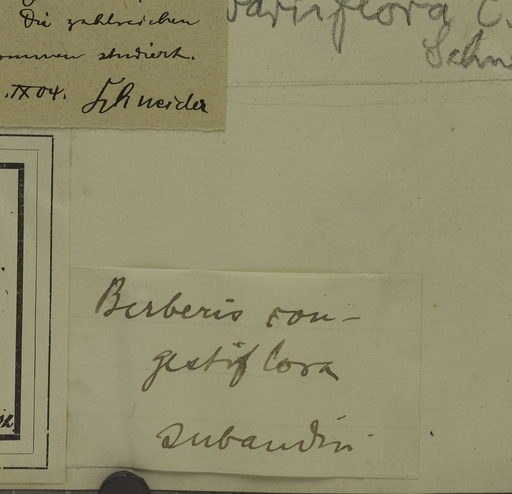 Die zahlreichen
ommen studiert.
.IX 04. Schneider
variiflora C.
Schn
Berberis con-
gestiflora
subandin